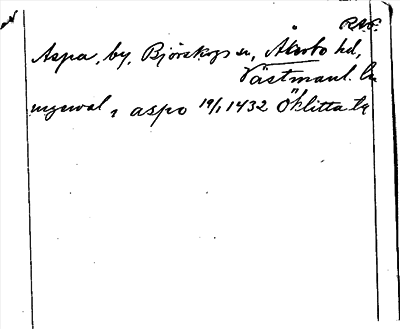 R.A.P.
Aspa, by, Björskogs sn, Åkerbo hd,
Västmanl. län
ungewal, aspo 19/1 1432 Öhlitta